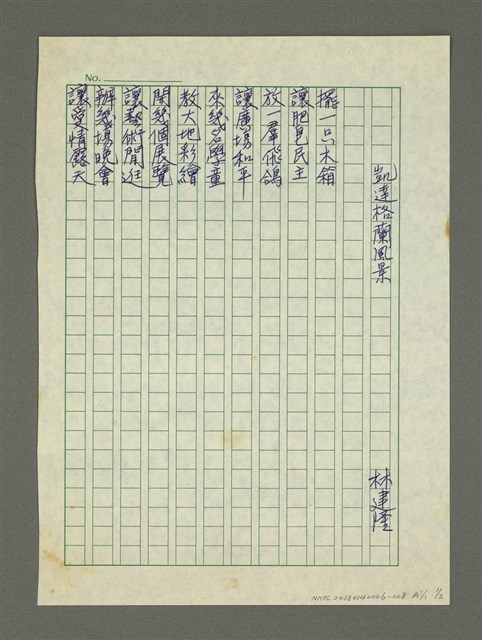 No.
凱達格蘭風景
林建隆
擺一只木箱
讓肥皂民主
放一羣飛鴿
讓廣場和平
來幾名學童
教大地彩繪
開幾個展覽
讓藝術閒逛
辦幾場晚會
讓愛情露天
NMTL20180140006-008 A1/1 1/2